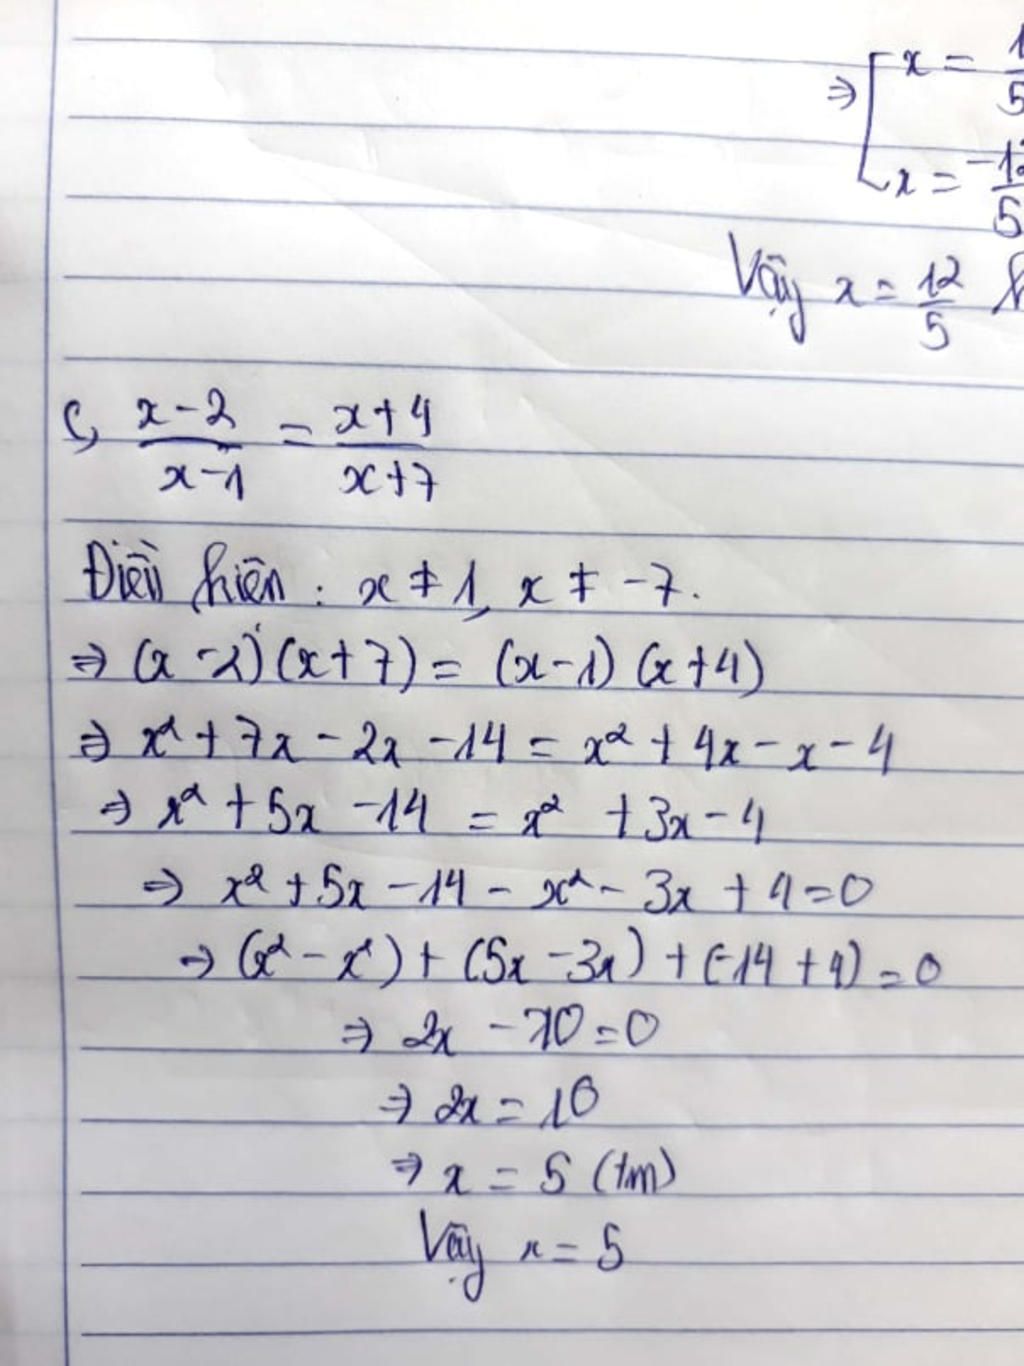 ⇒ [ x = 1/5
x = -12/5
Vậy x = 12/5
c, (x-2)/(x-1) = (x+4)/(x+7)
Điều kiện : x ≠ 1, x ≠ -7.
⇒ (x -2)(x+7) = (x-1) (x+4)
⇒ x² + 7x - 2x - 14 = x² + 4x - x - 4
⇒ x² + 5x - 14 = x² + 3x - 4
⇒ x² + 5x - 14 - x² - 3x + 4 = 0
⇒ (x² - x²) + (5x - 3x) + (-14 + 4) = 0
⇒ 2x - 10 = 0
⇒ 2x = 10
⇒ x = 5 (tm)
Vậy x = 5